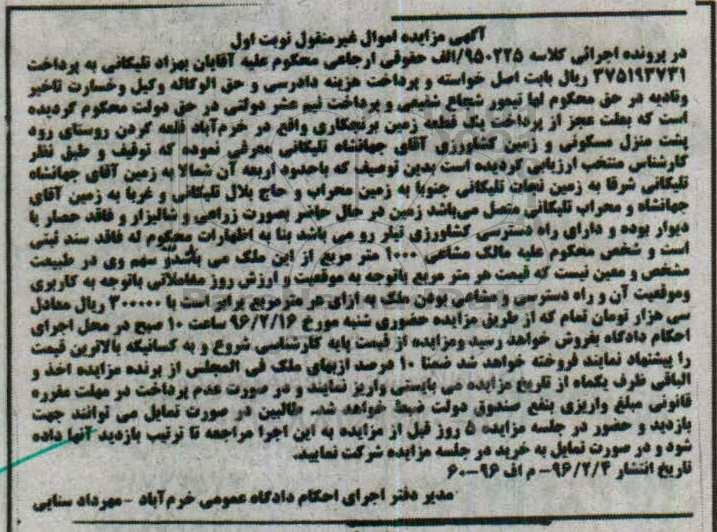 آگهی مزایده اموال غیرمنقول نوبت اول
در پرونده اجرائی کلاسه ۹۵۰۲۲۵/الف حقوقی ارجاعی محکوم علیه آقایان بهزاد تلیکانی به پرداخت
۳۷۵۱۹۳۷۳۱ ریال بابت اصل خواسته و پرداخت هزینه دادرسی و حق الوکاله وکیل وخسارت تاخیر
وتادیه در حق محکوم لها تیمور شجاع شفیعی و پرداخت نیم عشر دولتی در حق دولت محکوم گردیده
است که بعلت عجز از پرداخت یک قطعه زمین برنجکاری واقع در خرم‌آباد قلعه گردن روستای رود
پشت منزل مسکونی و زمین کشاورزی آقای جهانشاه تلیکانی معرفی نموده که توقیف و طبق نظر
کارشناس منتخب ارزیابی گردیده است بدین توصیف که باحدود اربعه آن شمالا به زمین آقای جهانشاه
تلیکانی شرقا به زمین نجات تلیکانی جنوبا به زمین محراب و حاج بلال تلیکانی و غربا به زمین آقای
جهانشاه و محراب تلیکانی متصل می‌باشد زمین در حال حاضر بصورت زراعی و شالیزار و فاقد حصار یا
دیوار بوده و دارای راه دسترسی کشاورزی تیلر رو می باشد بنا به اظهارات محکوم له فاقد سند ثبتی
است و شخص محکوم علیه مالک مشاعی ۱۰۰۰ متر مربع از این ملک می باشد و سهم وی در طبیعت
مشخص و معین نیست که قیمت هر متر مربع باتوجه به موقعیت و ارزش روز معاملاتی باتوجه به کاربری
وموقعیت آن و راه دسترسی و مشاعی بودن ملک به ازای هر مترمربع برابر است با ۳۰۰۰۰۰ ریال معادل
سی هزار تومان تمام که از طریق مزایده حضوری شنبه مورخ ۹۶/۲/۱۶ ساعت ۱۰ صبح در محل اجرای
احکام دادگاه بفروش خواهد رسید ومزایده از قیمت پایه کارشناسی شروع و به کسانیکه بالاترین قیمت
را پیشنهاد نمایند فروخته خواهد شد ضمنا ۱۰ درصد ازبهای ملک فی المجلس از برنده مزایده اخذ و
الباقی ظرف یکماه از تاریخ مزایده می بایستی واریز نمایند و در صورت عدم پرداخت در مهلت مقرره
قانونی مبلغ واریزی بنفع صندوق دولت ضبط خواهد شد. طالبین در صورت تمایل می توانند جهت
بازدید و حضور در جلسه مزایده ۵ روز قبل از مزایده به این اجرا مراجعه تا ترتیب بازدید آنها داده
شود و در صورت تمایل به خرید در جلسه مزایده شرکت نمایید.
تاریخ انتشار ۹۶/۲/۴- م الف ۹۶-۶۰
مدیر دفتر اجرای احکام دادگاه عمومی خرم‌آباد -مهرداد سنایی